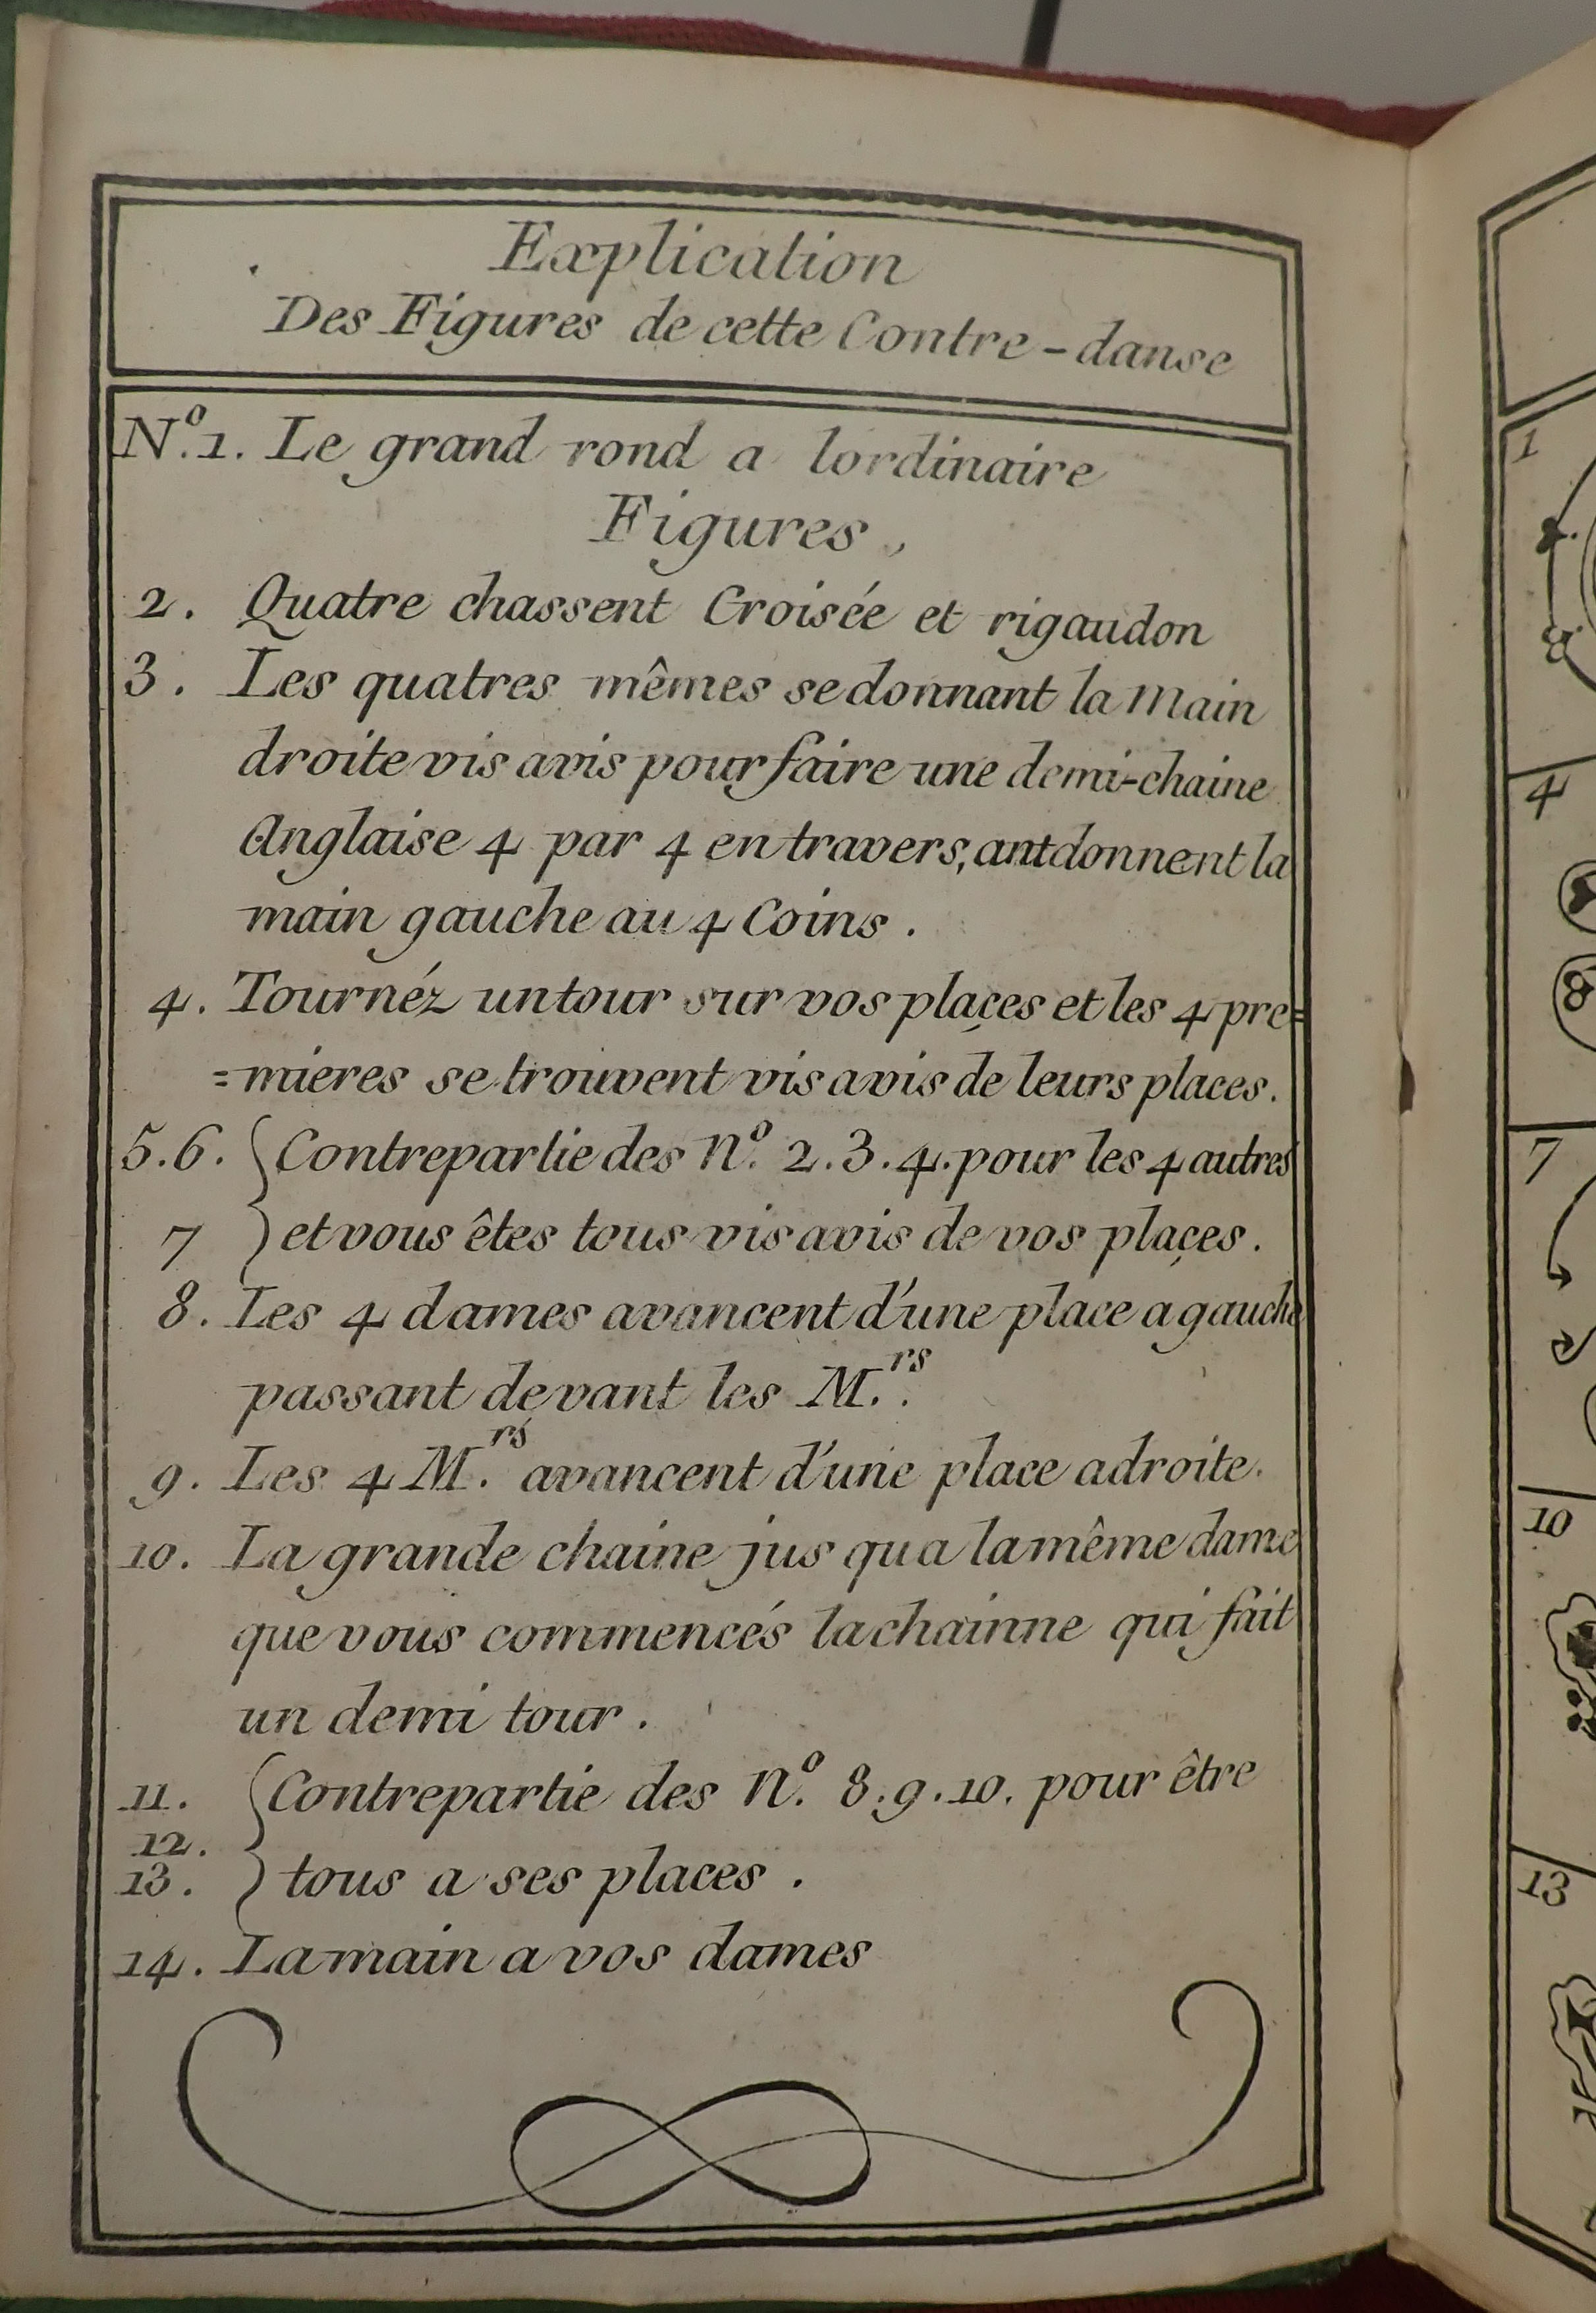 Explication
Des Figures de cette Contre-danse
Nº.1. Le grand rond a lordinaire
Figures,
2. Quatre chassent Croisée et rigaudon
3. Les quatres mêmes se donnant la main
droite vis avis pour faire une demi-chaine
Anglaise 4 par 4 en travers, antdonnent la
main gauche au 4 Coins.
4. Tournéz un tour sur vos places et les 4 pre=
=mieres se trouvent vis avis de leurs places.
5.6. Contrepartie des nº. 2.3.4. pour les 4 autres
7 et vous êtes tous vis avis de vos places.
8. Les 4 dames avancent d'une place a gauche
passant devant les M.rs.
9. Les 4 M.rs avancent d'une place a droite.
10. La grande chaine jus qu a la même dame
que vous commencés la chainne qui fait
un demi tour.
11. Contrepartie des nº. 8.9.10. pour être
12.
13. tous a ses places.
14. La main a vos dames
1
4
8
7
10
13